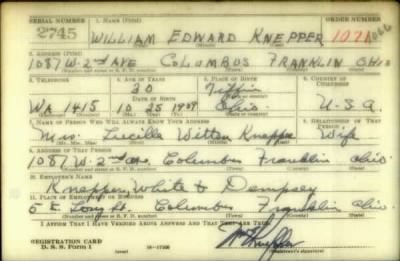 SERIAL NUMBER 1. NAME (Print) ORDER NUMBER
2745 WILLIAM EDWARD KNEPPER 107
(First) (Middle) (Last)
2. ADDRESS (Print)
1087 W. 2nd AVE COLUMBUS FRANKLIN OHIO
(Town) (County) (State)
3. TELEPHONE 4. AGE IN YEARS 5. PLACE OF BIRTH 6. COUNTRY OF CITIZENSHIP
30 Tiffin
WA 1415 10 25 1909 Ohio U.S.A.
7. NAME OF PERSON WHO WILL ALWAYS KNOW YOUR ADDRESS 8. RELATIONSHIP OF THAT PERSON
Mrs. Lucille Witten Knepper Wife
(Mr., Mrs., Miss) (First) (Middle) (Last)
9. ADDRESS OF THAT PERSON
1087 W. 2nd Ave, Columbus Franklin Ohio.
(Town) (County) (State)
10. EMPLOYER'S NAME
Knepper, White & Dempsey
11. PLACE OF EMPLOYMENT OR BUSINESS
5 E. Long St. Columbus Franklin Ohio.
(Town) (County) (State)
I AFFIRM THAT I HAVE VERIFIED ABOVE ANSWERS AND THAT THEY ARE TRUE.
REGISTRATION CARD
D. S. S. Form 1
(Registrant's signature)